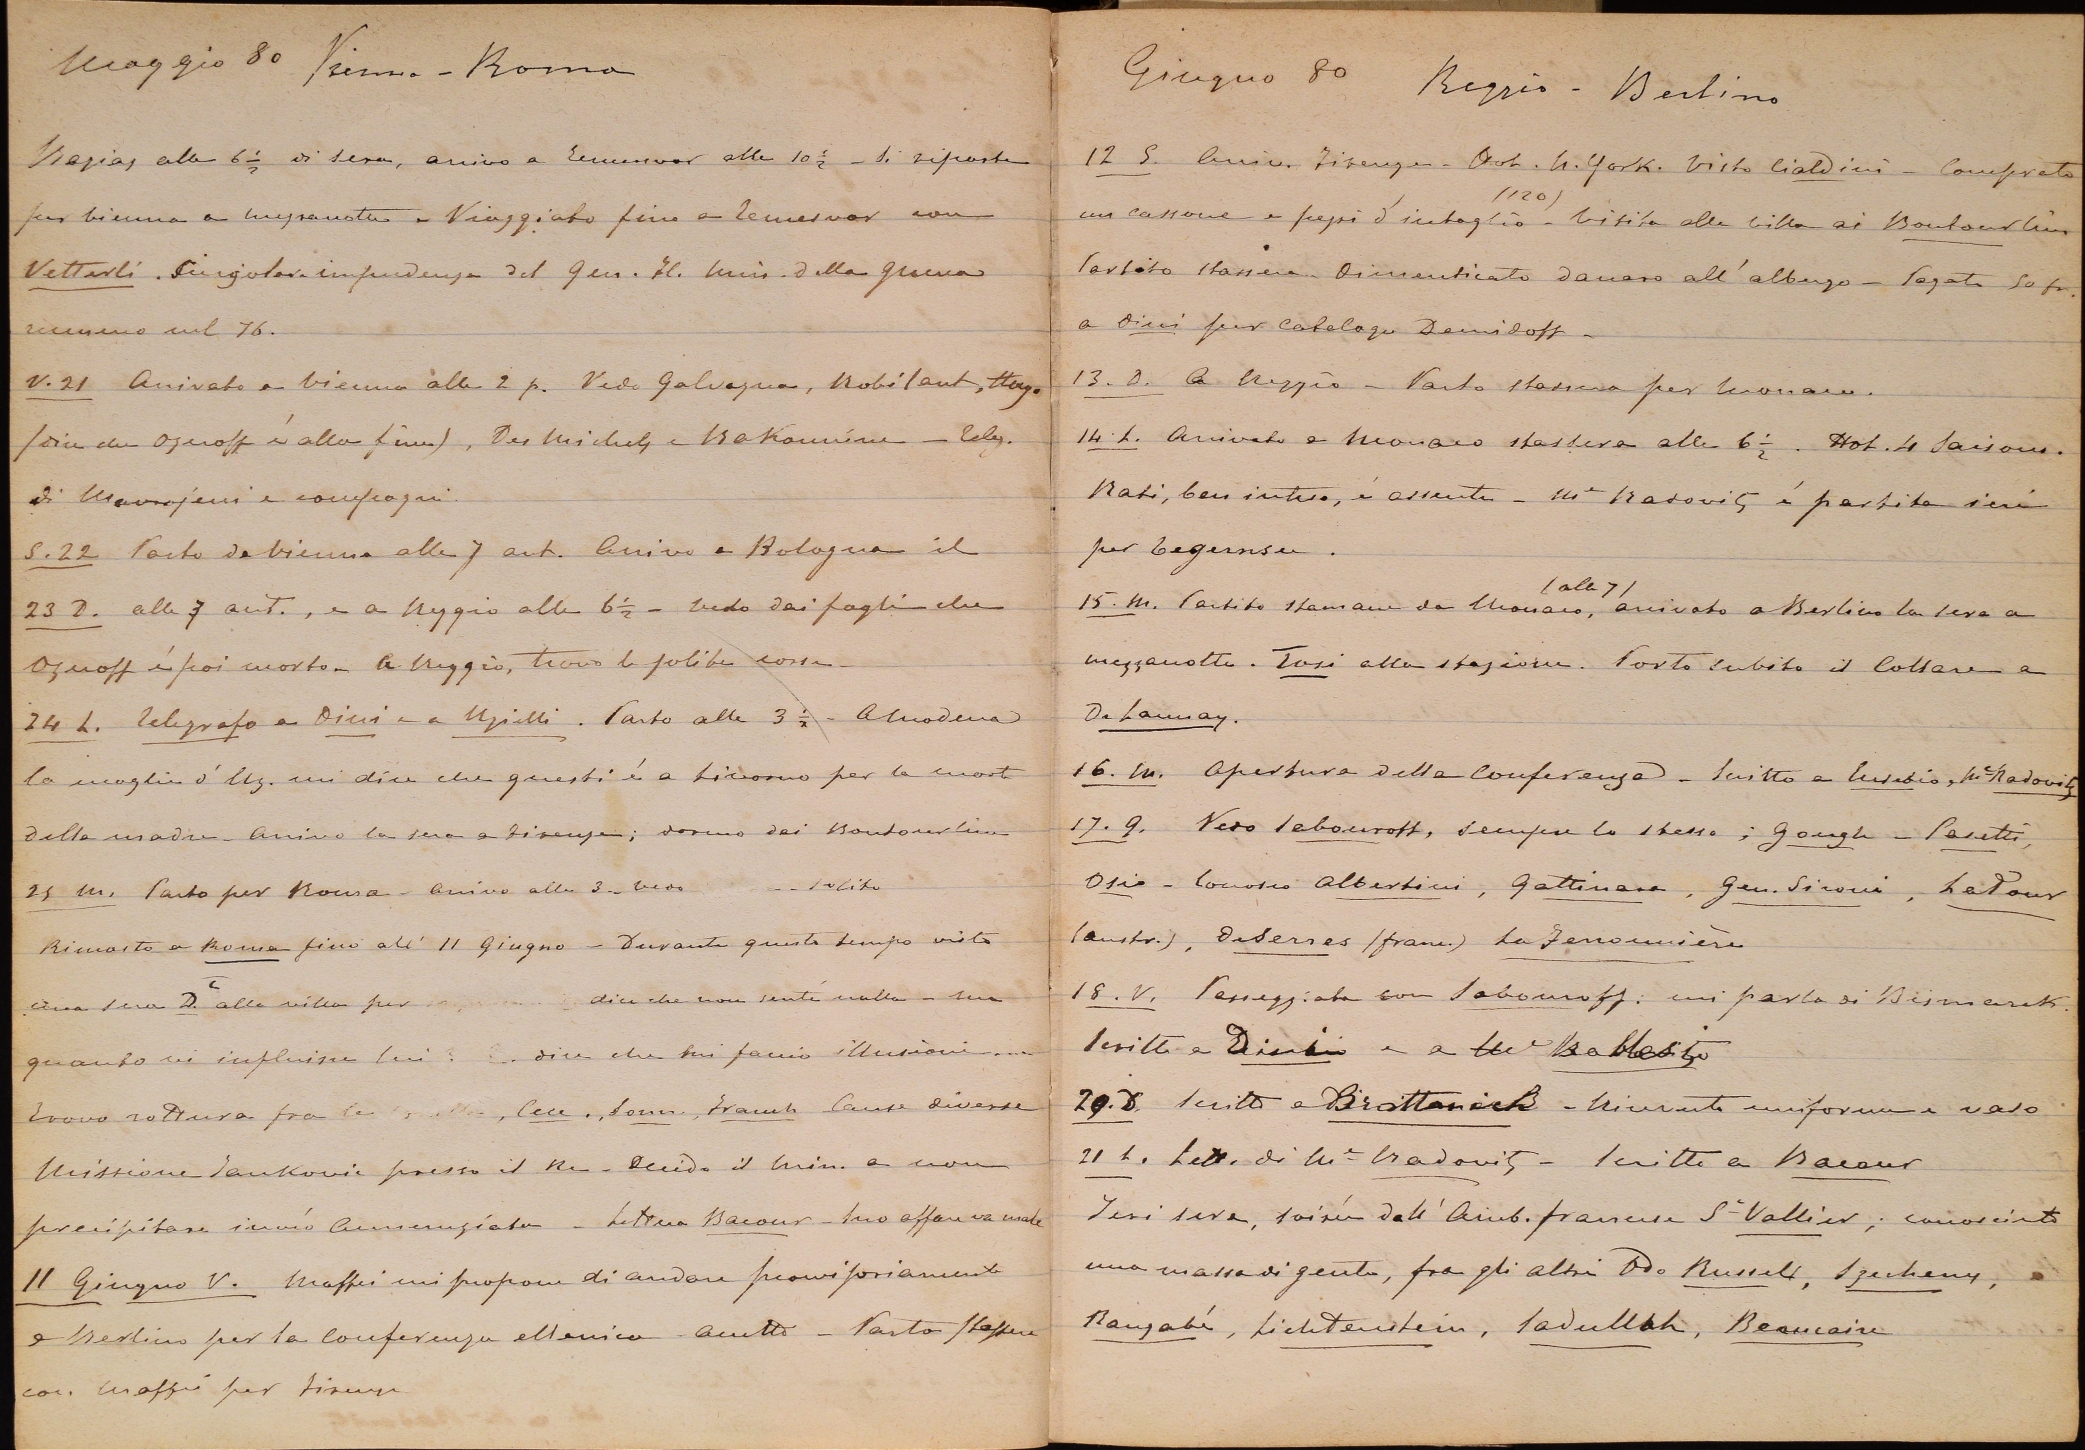 Maggio 80 Vienna - Roma
alle 6½ di sera, arrivo a Temesvar alle 10½ - Si riparte
per Vienna a mezzanotte - Viaggiato fino a Temesvar con
Vetterli. Singolare impudenza del Gen. Fl. Min. della Guerra
rumeno nel 76.
V. 21 Arrivato a Vienna alle 2 p. Vedo Galvagna, Robilant,
(dice che Ozeroff é alla fine), Des Michels e Bakounine - Teleg.
di Mavrojeni e compagni.
S. 22 Parto da Vienna alle 7 ant. Arrivo a Bologna il
23 D. alle 7 ant., e a Reggio alle 6½ - Vedo dai fogli che
Ozeroff é poi morto. A Reggio, trovo le solite cose -
24 L. Telegrafo a Dini e a Uzielli. Parto alle 3½ - A Modena
la moglie d'Uz. mi dice che questi é a Livorno per la morte
della madre - Arrivo la sera a Firenze; dormo dai Boutourline
25 M. Parto per Roma - arrivo alle 3 - Vedo solito
Rimasto a Roma fino all' 11 Giugno - Durante questo tempo visto
una sera D. alla villa per dice che non senté nulla - ma
quanto vi influisce lui dice che mi faccio illusioni
Trovo rottura fra Cause diverse
Missione Jankovic presso il Re - Decido il Min. a non
precipitare invio - Lettera Bacour - Suo affare va male
11 Giugno V. Maffei mi propone di andare provvisoriamente
a Berlino per la Conferenza ellenica - accetto - Parto stassera
con Maffei per Firenze
Giugno 80 Reggio - Berlino
12 S. Arriv. Firenze - Hot. N. York. Visto Cialdini - Comprato
(120)
un cassone e pezzi d'intaglio - Visita alla villa ai Boutourline
Partito stassera - Dimenticato danaro all'albergo - Pagato 50 fr.
a Dini per Catalogo Demidoff -
13. D. A Reggio - Parto stassera per Monaco.
14. L. Arrivato a Monaco stassera alle 6½. Hot. 4 Saisons.
Rati, ben inteso, é assente - Me Radovitz é partita ieri
per Tegernsee.
(alle 7)
15. M. Partito stamane da Monaco, arrivato a Berlino la sera a
mezzanotte. Tosi alla stazione. Porto subito il Collare a
De Launay.
16. M. Apertura della Conferenza - Scritto a Eusebio, Me Radovitz
17. G. Vedo Sabouroff, sempre lo stesso; Gough - Pasetti,
Osio - Conosco Albertini, Gattinara, Gen. Sironi, La Tour
(austr.), De Serres (franc.) La Ferronnière
18. V. Passeggiata con Sabouroff: mi parla di Bismarck.
Scritto a e a Me
20. D. Scritto a - Ricevute uniforme e vaso
21 L. Lett. di Me Radovitz - Scritto a Bacour
Ieri sera, soirée dall' Amb. francese St Vallier; conosciuto
una massa di gente, fra gli altri Odo Russell, Szecheny,
Rangabé, Lichtenstein, Sadullah, Beaucaire